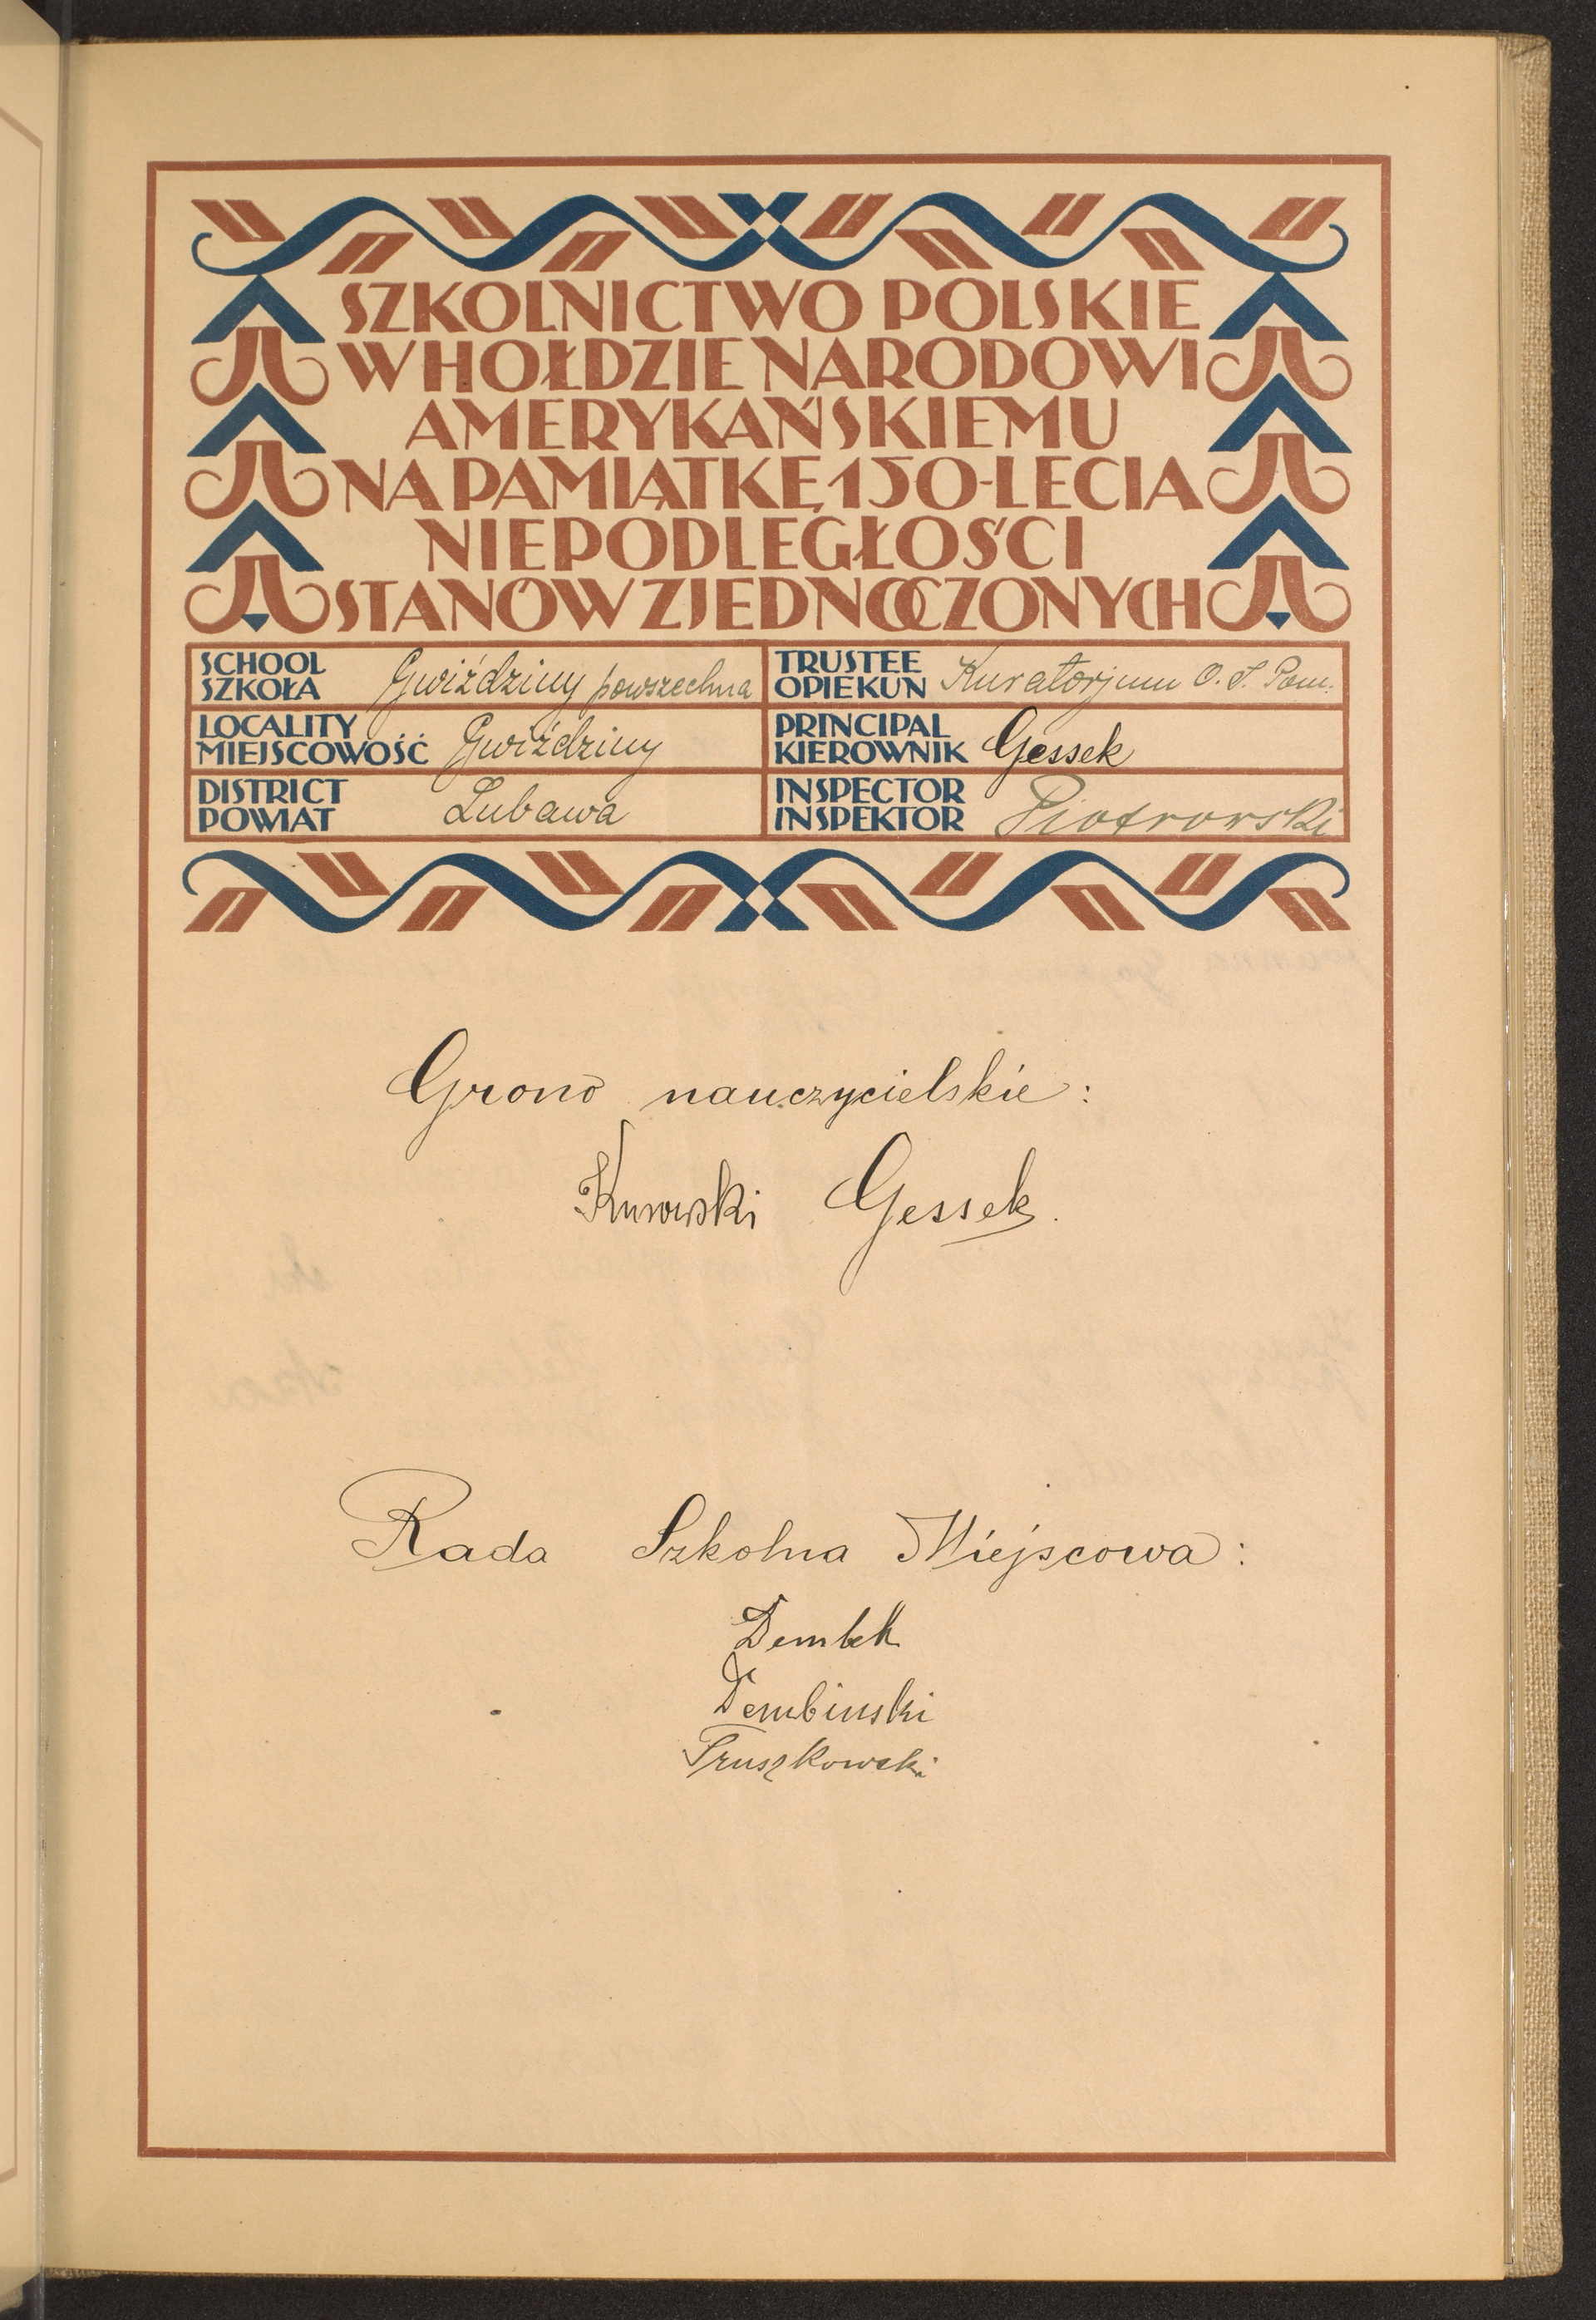 SZKOLNICTWO POLSKIE
W HOŁDZIE NARODOWI
AMERYKAŃSKIEMU
NA PAMIĄTKĘ 150-LECIA
NIEPODLEGŁOŚCI
STANÓW ZJEDNOCZONYCH
SCHOOL
SZKOŁA Gwiździny powszechna
TRUSTEE
OPIEKUN Kuratorjum O. S. Pom.
LOCALITY
MIEJSCOWOŚĆ Gwiździny
PRINCIPAL
KIEROWNIK Gessek
DISTRICT
POWIAT Lubawa
INSPECTOR
INSPEKTOR Piotrowski
Grono nauczycielskie:
Kurowski Gessek.
Rada Szkolna Miejscowa:
Dembek
Dembinski
Truszkowski